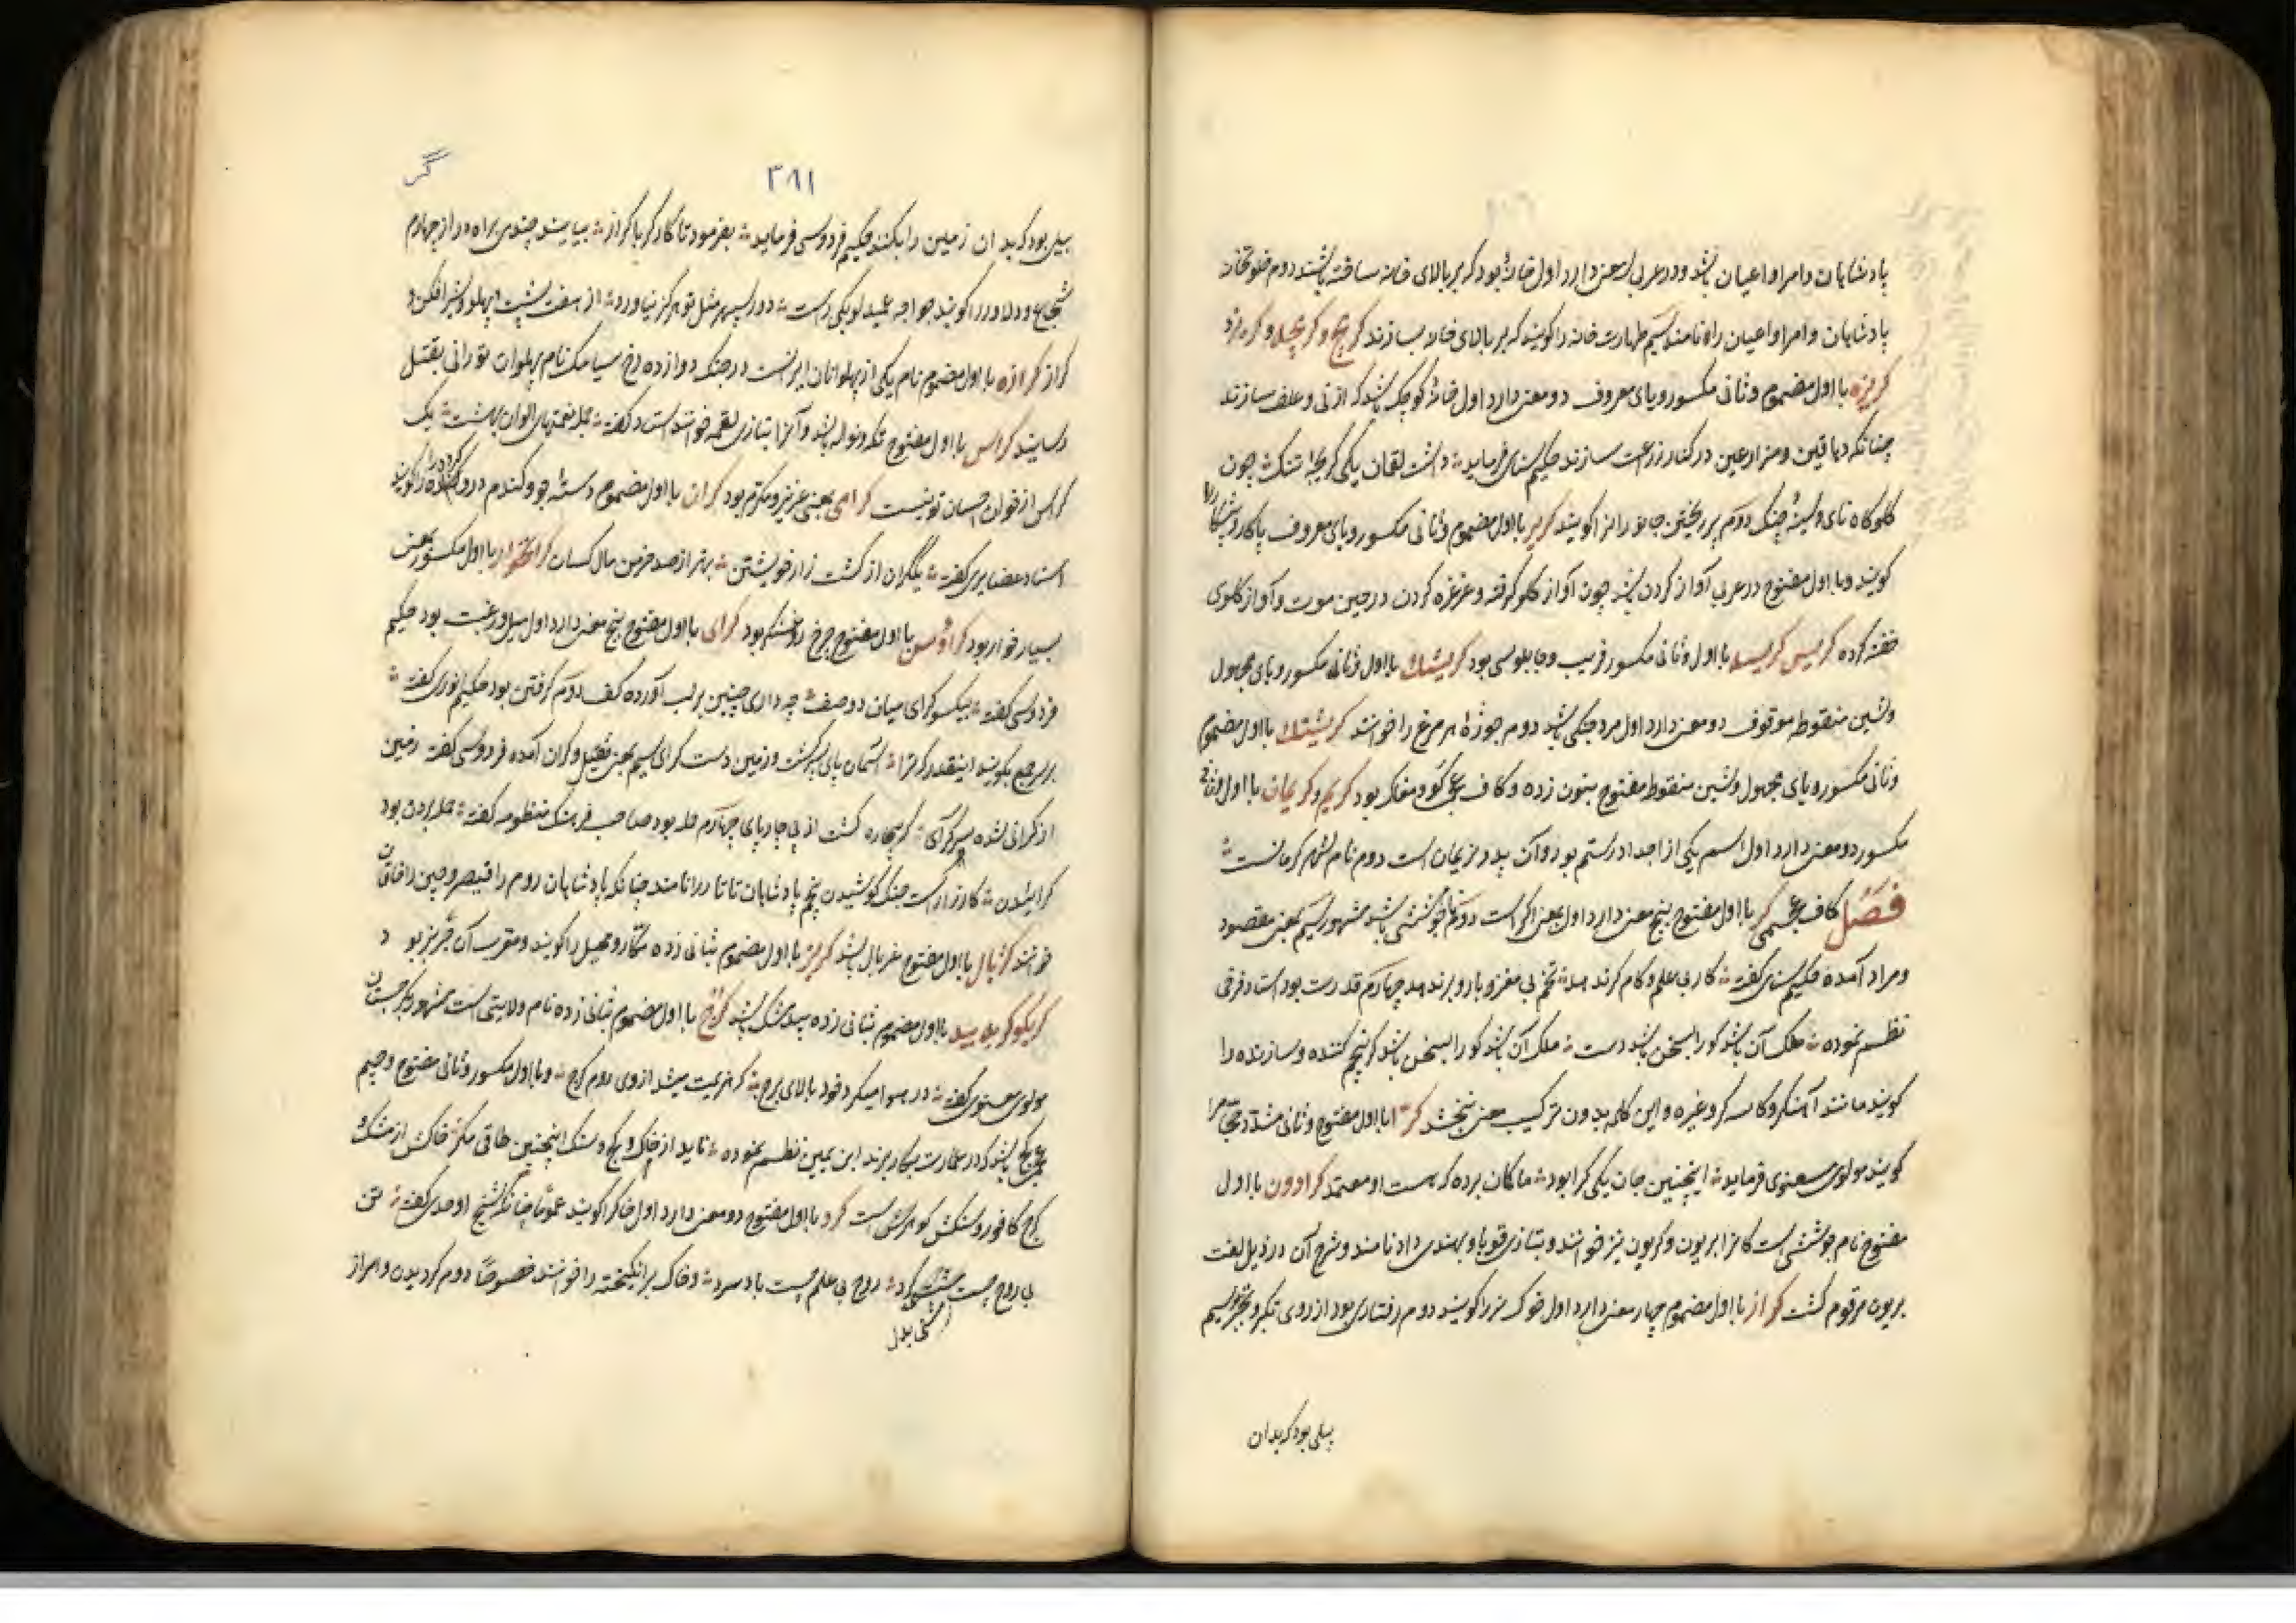 پادشاهان و امرا و اعیان باشد و در عربی سه معنی دارد اول خانهٔ بود که بر بالای خانه ساخته باشند دوم خلوتخانه
پادشاهان و امرا و اعیان را نامند سیم طهارت خانه را کویند که بر بالای خانه بسازند کریج و کریچه و
کریزه با اول مضموم و ثانی مکسور و یای معروف دو معنی دارد اول خانهٔ کوچک باشد که از نی و علف سازند
چنانکه دهاقین و مزارعین در کنار زراعت سازند حکیم سنائی فرماید داشت لقمان یکی کریچهٔ تنک چون
کلوکاه نای و سینهٔ چنک دوم پر ریختن جانوران را کویند کریر با اول مضموم و ثانی مکسور و یای معروف
کویند و با اول مفتوح در عربی آواز کردن باشد چون آواز کلو کرفته و غرغره کردن در حین موت و آواز کلوی
خفه کرده کریس کریسه با اول و ثانی مکسور فریب و چاپلوسی بود کریشک با اول و ثانی مکسور و یای مجهول
و شین منقوطه موقوف دو معنی دارد اول مرد جنکی باشد دوم جوزهٔ هر مرغ را خوانند کریشنک با اول مضموم
و ثانی مکسور و یای مجهول و شین منقوطه مفتوح بنون زده و کاف عجمی کو و مغاک بود کریم و کریمان با اول و ثانی
مکسور دو معنی دارد اول اسم یکی از اجداد رستم بود و آن پدر نریمان است دوم نام شهر کرمانست
فصل کاف عجمی کر با اول مفتوح پنج معنی دارد اول بمعنی اکر است دوم جوششی باشد مشهور سیم بمعنی مقصود
و مراد آمده حکیم سنائی کفته کار بی علم و کام کر ندهد تخم بی مغز و بار و بر ندهد چهارم قدرت بود استاد فرخی
نظم نموده ملک آن باشد کو را بسخن باشد دست ملک آن باشد کو را بسخن باشد کر پنجم کننده و سازنده را
کویند مانند آهنکر و کاسه کر و غیره و این کلمه بدون ترکیب معنی نبخشد کرّا با اول مفتوح و ثانی مشدد حجام را
کویند مولوی معنوی فرماید اینچنین جان یکی کرا بود ما کان برده که هست او معتمد کراوون با اول
مفتوح نام جوششی است که آنرا بریون و کریون نیز خوانند و بتازی قوبا و بهندی داد نامند و شرح آن در ذیل لغت
بریون مرقوم کشت کراز با اول مضموم چهار معنی دارد اول خوک نر را کویند دوم رفتاری بود از روی تکبر و سیم
بیلی بود که بدان
۳۸۱
گر
بیلی بود که بدان زمین را بکنند حکیم فردوسی فرماید بفرمود تا کارکر با کراز بیایند چندی براه دراز چهارم
شجاع و دلاور را کویند خواجه عمید لوبکی راست دور سپهر مثل تو هرکز نیاورد از هفت پشت و پهلو و شیر افکن و
کراز کرازه با اول مضموم نام یکی از پهلوانان ایرانست در جنک دوازده رخ سیامک نام پهلوان تورانی بقتل
رسانید کراس با اول مفتوح تکه و نواله باشد و آنرا بتازی لقمه خوانند استاد کفته جمله نعمتهای الوان بهشت یک
کراس از خوان احسان تو نیست کرامی بمعنی عزیز و مکرم بود کران با اول مضموم دستهٔ جو و کندم درو کرده را کویند
استاد عضایری کفته یک کران از کشت زار خویشتن بهتر از صد خرمن مال کسان با اول مکسور بمعنی
بسیار خوار بود با اول مفتوح چرخ بود کرای با اول مفتوح پنج معنی دارد اول میل و رغبت بود حکیم
فردوسی کفته بیکسو کرای میان دو صف چه داری چنین بر لب آورده کف دوم کرفتن بود حکیم انوری کفته
بر سر جمع بکویند اینقدر کر ترا آسمان پای سپر کشت و زمین دست کرای سیم بمعنی ثقیل و کران آمده فردوسی کفته زمین
از کرانی شده سر کرای که بیچاره کشت از پی چارپای چهارم حمله بود صاحب فرهنک منظومه کفته حمله بردن بود
کرائیدن کارزار است جنک کوشیدن پنجم پادشاهان تاتار را نامند چنانکه پادشاهان روم را قیصر و چین را خاقان
خوانند کربال با اول مفتوح غربال باشد کربز با اول مضموم بثانی زده مکار و محیل را کویند و معرب آن جربز بود
با اول مضموم بثانی زده بیدمشک باشد کرج با اول مضموم بثانی زده نام ولایتی است مشهور بکرجستان
مولوی معنوی کفته در هوا میکرد خود بالای برج که هزیمت میشد از وی روم کرج و با اول مکسور و ثانی مفتوح و جیم
عجمی کچ باشد که در عمارت بکار برند ابن یمین نظم نموده ناید از خاک و کچ و سنک اینچنین طاقی مکر خاکش از مشک و
کچ کافور و سنکش کوهرش است کرد با اول مفتوح دو معنی دارد اول خاک را کویند عموماً چنانکه شیخ اوحدی کفته تن
بی روح چیست مشتی کرد روح بی علم چیست باد سرد و خاک برانکیخته را خوانند خصوصاً دوم کردیدن و امر از